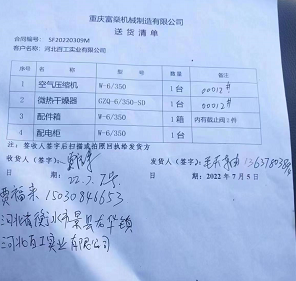 重庆富燊机械制造有限公司
送 货 清 单
合同编号: SF20220309M
客户名称: 河北百工实业有限公司
序号 名称 型号 数量 备注
1 空气压缩机 W-6/350 1台 00012#
2 微热干燥器 GZQ-6/350-SD 1台 00012#
3 配件箱 W-6/350 1箱 内有截止阀2件
4 配电柜 W-6/350 1台
注: 签收人签字后扫描或拍照回执给发货方
收货人(签字): 发货人(签字): 1363780385
日 期: 22.7.7号 日 期: 2022年7月5日
贾福来 15030846653
河北省衡水市景县龙华镇
河北百工实业有限公司